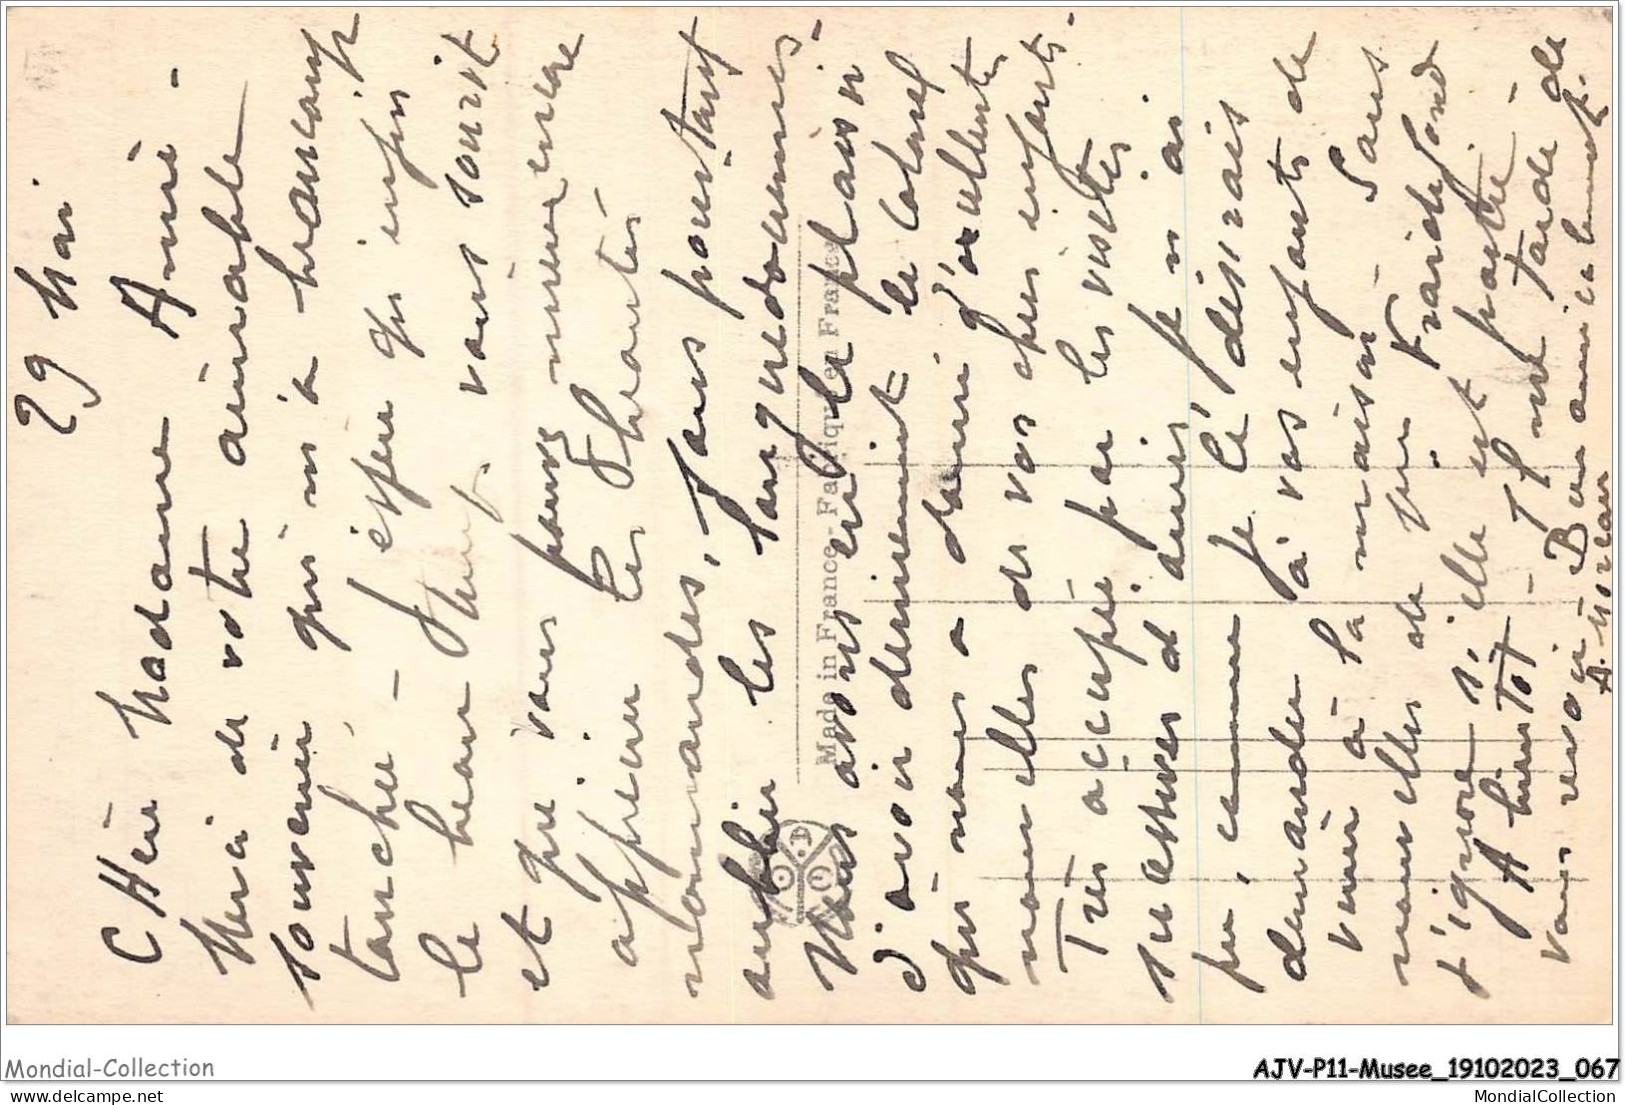 29 Mai
CHère Madame Amie -
Merci de votre aimable
souvenir qui m'a beaucoup
touchée - J'espère qu'enfin
le beau temps vous sourit
et que vous pouvez mieux encore
apprécier les Beautés
normandes, sans pourtant
oublier les Languedociennes -
Nous avons eu le plaisir
d'avoir dernièrement le Colonel
qui nous a donné d'excellentes
nouvelles de vos chers enfants -
Très occupé par les visites
suessives et dîners je n'ai
pu, comme je l'désirais
demander à vos enfants de
venir à la maison - Sans
nouvelles de
j'ignore si elle est partie -
A bientot - Il me tarde de
vous revoir - Bon amicalement.
Made in France - Fabriqué en France
Mondial-Collection
AJV-P11-Musee_19102023_067
delcampe.net
MondialCollection